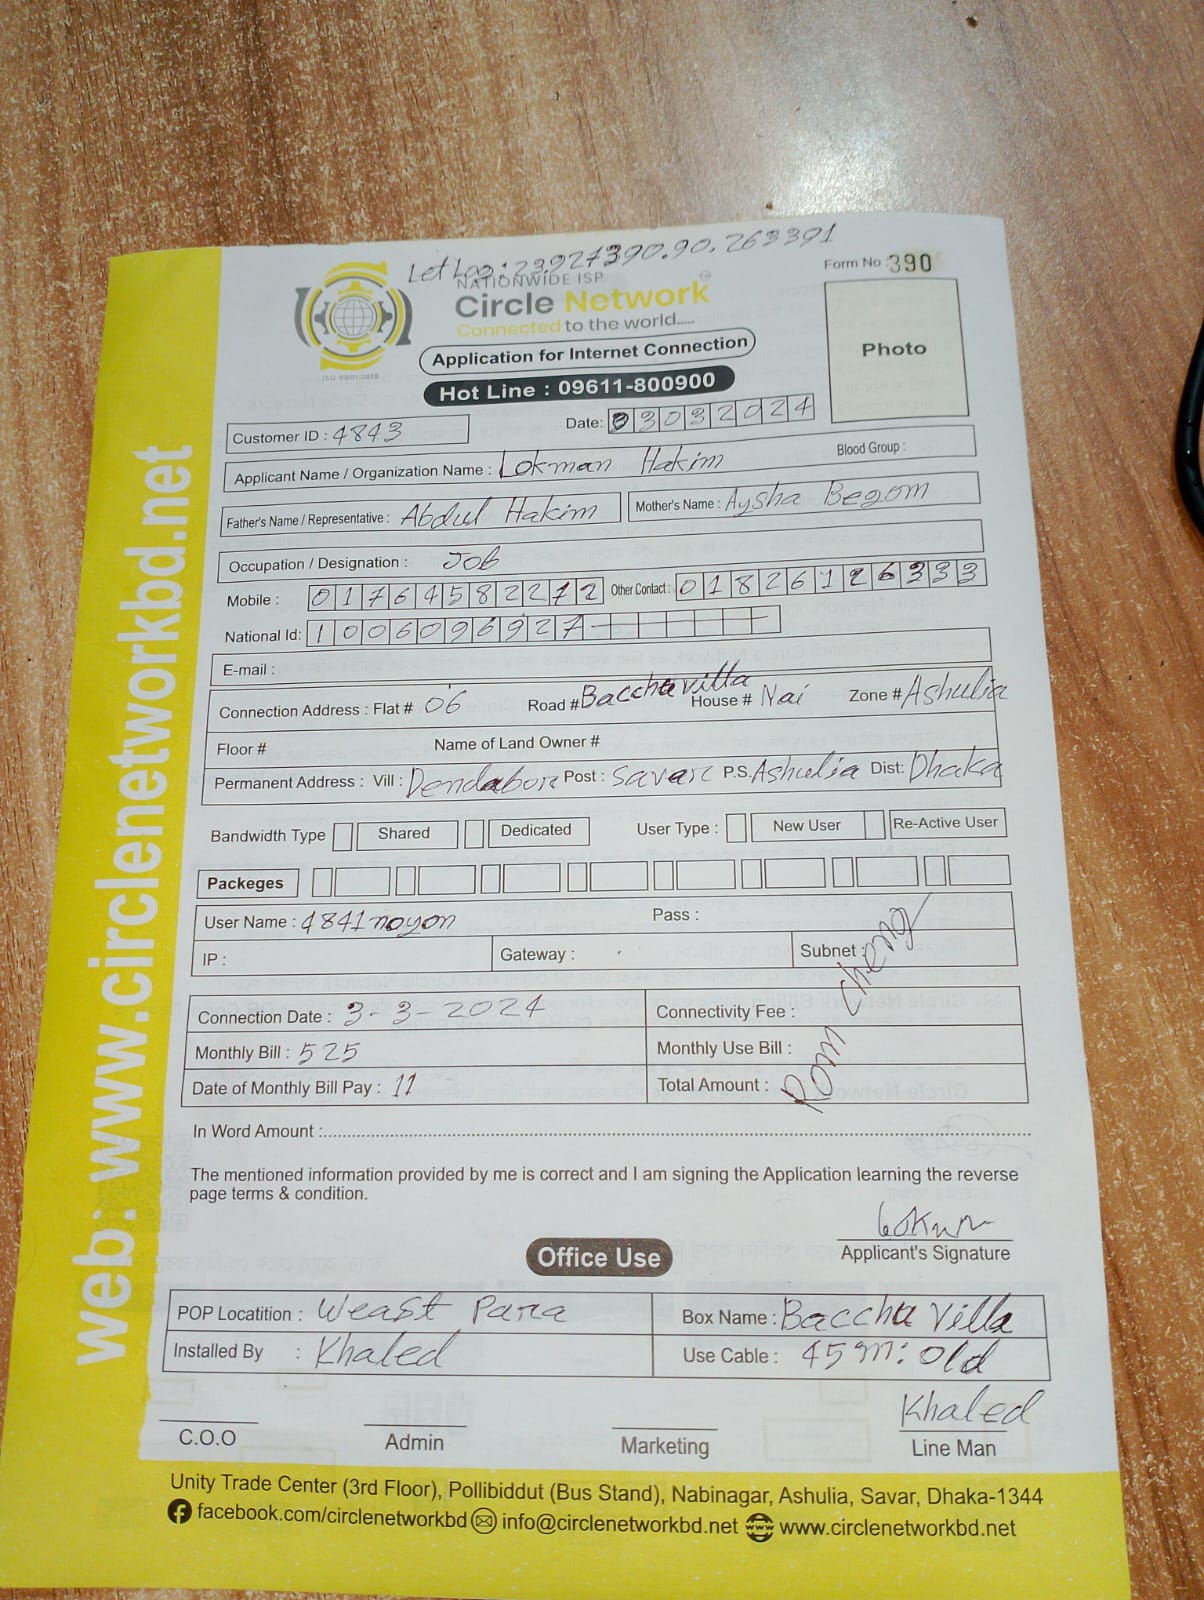 Let Log: 23.927390.90.263391
NATIONWIDE ISP
Form No 390
Circle Network
Connected to the world.....
ISO 9001:2015
Application for Internet Connection
Photo
Hot Line : 09611-800900
Customer ID : 4843
Date: 03032024
Applicant Name / Organization Name : Lokman Hakim
Blood Group :
Father's Name / Representative : Abdul Hakim
Mother's Name : Aysha Begom
Occupation / Designation : Job
Mobile : 01764582272 Other Contact : 01826126333
National Id: 1006096927-
E-mail :
Connection Address : Flat # 06 Road # Baccha villa House # Nai Zone # Ashulia
Floor # Name of Land Owner #
Permanent Address : Vill : Dendabor Post : Savar P.S. Ashulia Dist: Dhaka
Bandwidth Type Shared Dedicated User Type : New User Re-Active User
Packeges
User Name : 4841noyon Pass :
IP : Gateway : Subnet :
Rom Cheng
Connection Date : 3-3-2024 Connectivity Fee :
Monthly Bill : 525 Monthly Use Bill :
Date of Monthly Bill Pay : 11 Total Amount :
In Word Amount :
The mentioned information provided by me is correct and I am signing the Application learning the reverse
page terms & condition.
Applicant's Signature
Office Use
POP Locatition : Weast Para Box Name : Baccha Villa
Installed By : Khaled Use Cable : 45m: old
Khaled
C.O.O Admin Marketing Line Man
Unity Trade Center (3rd Floor), Pollibiddut (Bus Stand), Nabinagar, Ashulia, Savar, Dhaka-1344
facebook.com/circlenetworkbd info@circlenetworkbd.net www.circlenetworkbd.net
web: www.circlenetworkbd.net